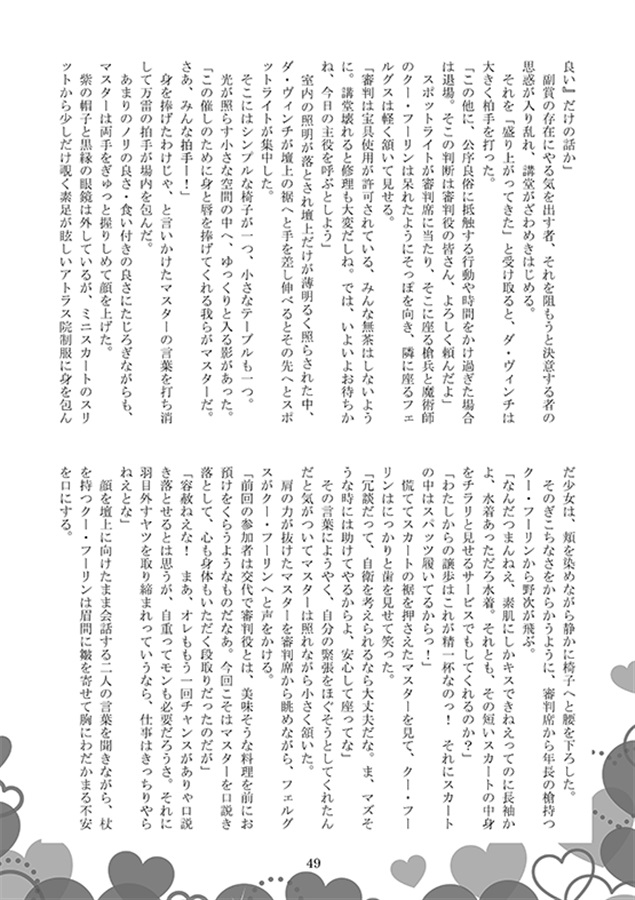 良い』だけの話か」
　副賞の存在にやる気を出す者、それを阻もうと決意する者の
思惑が入り乱れ、講堂がざわめきはじめる。
　それを「盛り上がってきた」と受け取ると、ダ・ヴィンチは
大きく柏手を打った。
「この他に、公序良俗に抵触する行動や時間をかけ過ぎた場合
は退場。そこの判断は審判役の皆さん、よろしく頼んだよ」
　スポットライトが審判席に当たり、そこに座る槍兵と魔術師
のクー・フーリンは呆れたようにそっぽを向き、隣に座るフェ
ルグスは軽く頷いて見せる。
「審判は宝具使用が許可されている、みんな無茶はしないよう
に。講堂壊れると修理も大変だしね。では、いよいよお待ちか
ね、今日の主役を呼ぶとしよう」
　室内の照明が落とされ壇上だけが薄明るく照らされた中、
ダ・ヴィンチが壇上の裾へと手を差し伸べるとその先へとスポ
ットライトが集中した。
　そこにはシンプルな椅子が一つ、小さなテーブルも一つ。
　光が照らす小さな空間の中へ、ゆっくりと入る影があった。
「この催しのために身と唇を捧げてくれる我らがマスターだ。
さあ、みんな拍手ー！」
　身を捧げたわけじゃ、と言いかけたマスターの言葉を打ち消
して万雷の拍手が場内を包んだ。
　あまりのノリの良さ・食い付きの良さにたじろぎながらも、
マスターは両手をぎゅっと握りしめて顔を上げた。
　紫の帽子と黒縁の眼鏡は外しているが、ミニスカートのスリ
ットから少しだけ覗く素足が眩しいアトラス院制服に身を包ん
だ少女は、頬を染めながら静かに椅子へと腰を下ろした。
　そのぎこちなさをからかうように、審判席から年長の槍持つ
クー・フーリンから野次が飛ぶ。
「なんだつまんねえ、素肌にしかキスできねえってのに長袖か
よ、水着あっただろ水着。それとも、その短いスカートの中身
をチラリと見せるサービスでもしてくれるのか？」
「わたしからの譲歩はこれが精一杯なのっ！　それにスカート
の中はスパッツ履いてるからっ！」
　慌ててスカートの裾を押さえたマスターを見て、クー・フー
リンはにっかりと歯を見せて笑った。
「冗談だって、自衛を考えられるなら大丈夫だな。ま、マズそ
うな時には助けてやるからよ、安心して座ってな」
　その言葉にようやく、自分の緊張をほぐそうとしてくれたん
だと気がついてマスターは照れながら小さく頷いた。
　肩の力が抜けたマスターを審判席から眺めながら、フェルグ
スがクー・フーリンへと声をかける。
「前回の参加者は交代で審判役とは、美味そうな料理を前にお
預けをくらうようなものだなあ。今回こそはマスターを口説き
落として、心も身体もいただく段取りだったのだが」
「容赦ねえな！　まあ、オレももう一回チャンスがありゃ口説
き落とせるとは思うが、自重ってモンも必要だろうさ。それに
羽目外すヤツを取り締まれっていうなら、仕事はきっちりやら
ねえとな」
　顔を壇上に向けたまま会話する二人の言葉を聞きながら、杖
を持つクー・フーリンは眉間に皺を寄せて胸にわだかまる不安
を口にする。
49